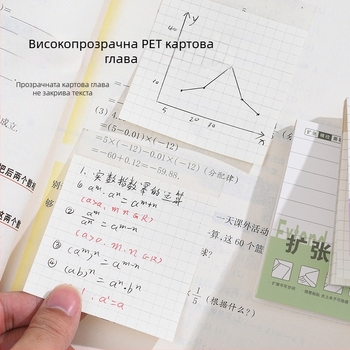 Високопрозрачна PET картова
глава
* Прозрачната картова глава
не закрива текста
y
60
40
20
10
5 10 20 40
x
成立.
(3) 4.
=(5−0.01)×(−12)
=5×(−12)−0.01×(−12)(分配律)
=−60+0.12=−59.88.
把后两个数
1. 实数指数幂的运算
① aᵐ·aⁿ=aᵐ⁺ⁿ
(a>0. m.n∈R)
② aᵐ/aⁿ=aᵐ⁻ⁿ
(a>0. m.n∈R)
③ (aᵐ)ⁿ=aᵐ⁻ⁿ
④ (ab)ⁿ=aⁿ·bⁿ
a¹=a
别
够
一天课外活动
算,这60个篮
球?
1/5
(根据什么?)
这两个数
Extend
扩张